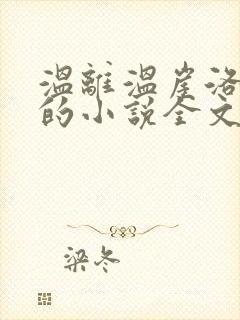 温離温崖洛
的小說全文
梁冬